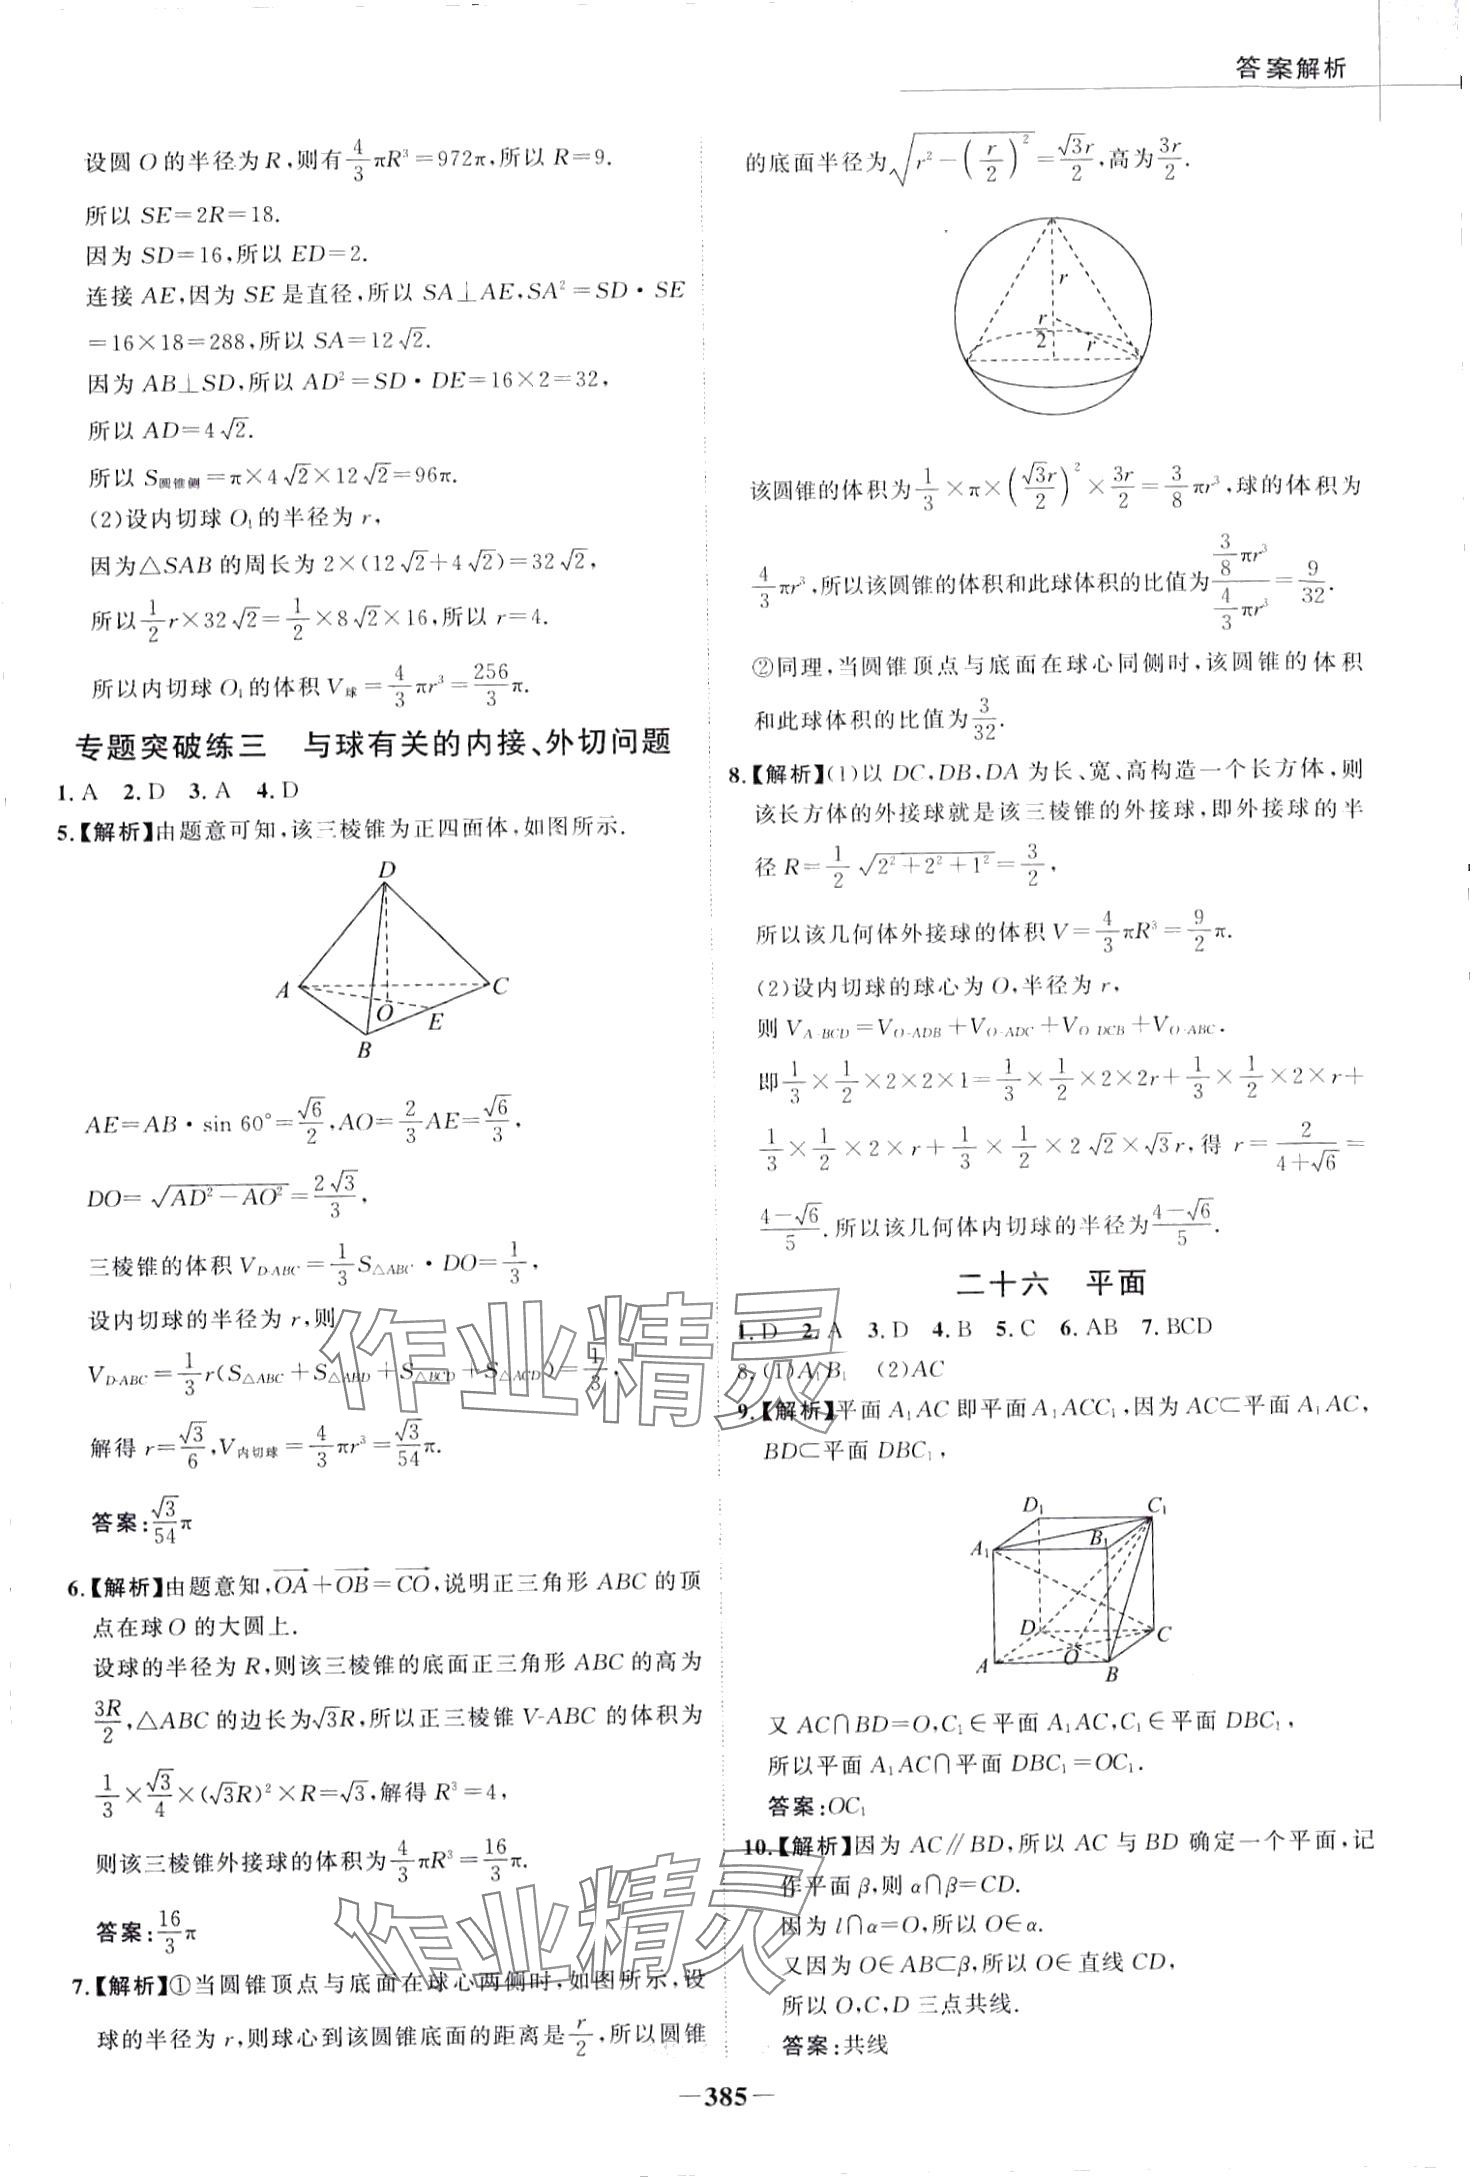 答案解析
设圆 O 的半径为 R,则有\frac{4}{3}πR³=972π,所以 R=9.
所以 SE=2R=18.
因为 SD=16,所以 ED=2.
连接 AE,因为 SE 是直径,所以 SA⊥AE,SA²=SD·SE
=16×18=288,所以 SA=12√2.
因为 AB⊥SD,所以 AD²=SD·DE=16×2=32,
所以 AD=4√2.
所以 S圆锥侧=π×4√2×12√2=96π.
(2)设内切球 O₁的半径为 r,
因为△SAB 的周长为 2×(12√2+4√2)=32√2,
所以\frac{1}{2}r×32√2=\frac{1}{2}×8√2×16,所以 r=4.
所以内切球 O₁的体积 V球=\frac{4}{3}πr³=\frac{256}{3}π.
专题突破练三 与球有关的内接、外切问题
1. A 2. D 3. A 4. D
5.【解析】由题意可知,该三棱锥为正四面体,如图所示.
D
A
C
O
E
B
AE=AB·sin 60°=\frac{√6}{2},AO=\frac{2}{3}AE=\frac{√6}{3},
DO=√(AD²-AO²)=\frac{2√3}{3},
三棱锥的体积 V_{D-ABC}=\frac{1}{3}S_{△ABC}·DO=\frac{1}{3},
设内切球的半径为 r,则
V_{D-ABC}=\frac{1}{3}r(S_{△ABC}+S_{△ABD}+S_{△BCD}+S_{△ACD})=\frac{1}{3},
解得 r=\frac{√3}{6},V内切球=\frac{4}{3}πr³=\frac{√3}{54}π.
答案:\frac{√3}{54}π
6.【解析】由题意知,\overrightarrow{OA}+\overrightarrow{OB}=\overrightarrow{CO},说明正三角形 ABC 的顶
点在球 O 的大圆上.
设球的半径为 R,则该三棱锥的底面正三角形 ABC 的高为
\frac{3R}{2},△ABC 的边长为√3R,所以正三棱锥 V-ABC 的体积为
\frac{1}{3}×\frac{√3}{4}×(√3R)²×R=√3,解得 R³=4,
则该三棱锥外接球的体积为\frac{4}{3}πR³=\frac{16}{3}π.
答案:\frac{16}{3}π
7.【解析】①当圆锥顶点与底面在球心两侧时,如图所示,设
球的半径为 r,则球心到该圆锥底面的距离是\frac{r}{2},所以圆锥
的底面半径为\sqrt{r²-(\frac{r}{2})²}=\frac{√3r}{2},高为\frac{3r}{2}.
r
\frac{r}{2}
r
该圆锥的体积为\frac{1}{3}×π×(\frac{√3r}{2})²×\frac{3r}{2}=\frac{3}{8}πr³,球的体积为
\frac{4}{3}πr³,所以该圆锥的体积和此球体积的比值为\frac{\frac{3}{8}πr³}{\frac{4}{3}πr³}=\frac{9}{32}.
②同理,当圆锥顶点与底面在球心同侧时,该圆锥的体积
和此球体积的比值为\frac{3}{32}.
8.【解析】(1)以 DC,DB,DA 为长、宽、高构造一个长方体,则
该长方体的外接球就是该三棱锥的外接球,即外接球的半
径 R=\frac{1}{2}\sqrt{2²+2²+1²}=\frac{3}{2},
所以该几何体外接球的体积 V=\frac{4}{3}πR³=\frac{9}{2}π.
(2)设内切球的球心为 O,半径为 r,
则 V_{A-BCD}=V_{O-ADB}+V_{O-ADC}+V_{O-DCB}+V_{O-ABC}.
即\frac{1}{3}×\frac{1}{2}×2×2×1=\frac{1}{3}×\frac{1}{2}×2×2r+\frac{1}{3}×\frac{1}{2}×2×r+
\frac{1}{3}×\frac{1}{2}×2×r+\frac{1}{3}×\frac{1}{2}×2√2×√3r,得 r=\frac{2}{4+√6}=
\frac{4-√6}{5}.所以该几何体内切球的半径为\frac{4-√6}{5}.
二十六 平面
1. D 2. A 3. D 4. B 5. C 6. AB 7. BCD
8. (1)A₁B₁ (2)AC
9.【解析】平面 A₁AC 即平面 A₁ACC₁,因为 AC⊂平面 A₁AC,
BD⊂平面 DBC₁,
D₁
C₁
A₁
B₁
D
C
A
O
B
又 AC∩BD=O,C₁∈平面 A₁AC,C₁∈平面 DBC₁,
所以平面 A₁AC∩平面 DBC₁=OC₁.
答案:OC₁
10.【解析】因为 AC∥BD,所以 AC 与 BD 确定一个平面,记
作平面 β,则 α∩β=CD.
因为 l∩α=O,所以 O∈α.
又因为 O∈AB⊂β,所以 O∈直线 CD,
所以 O,C,D 三点共线.
答案:共线
作业精灵
作业精灵
—385—